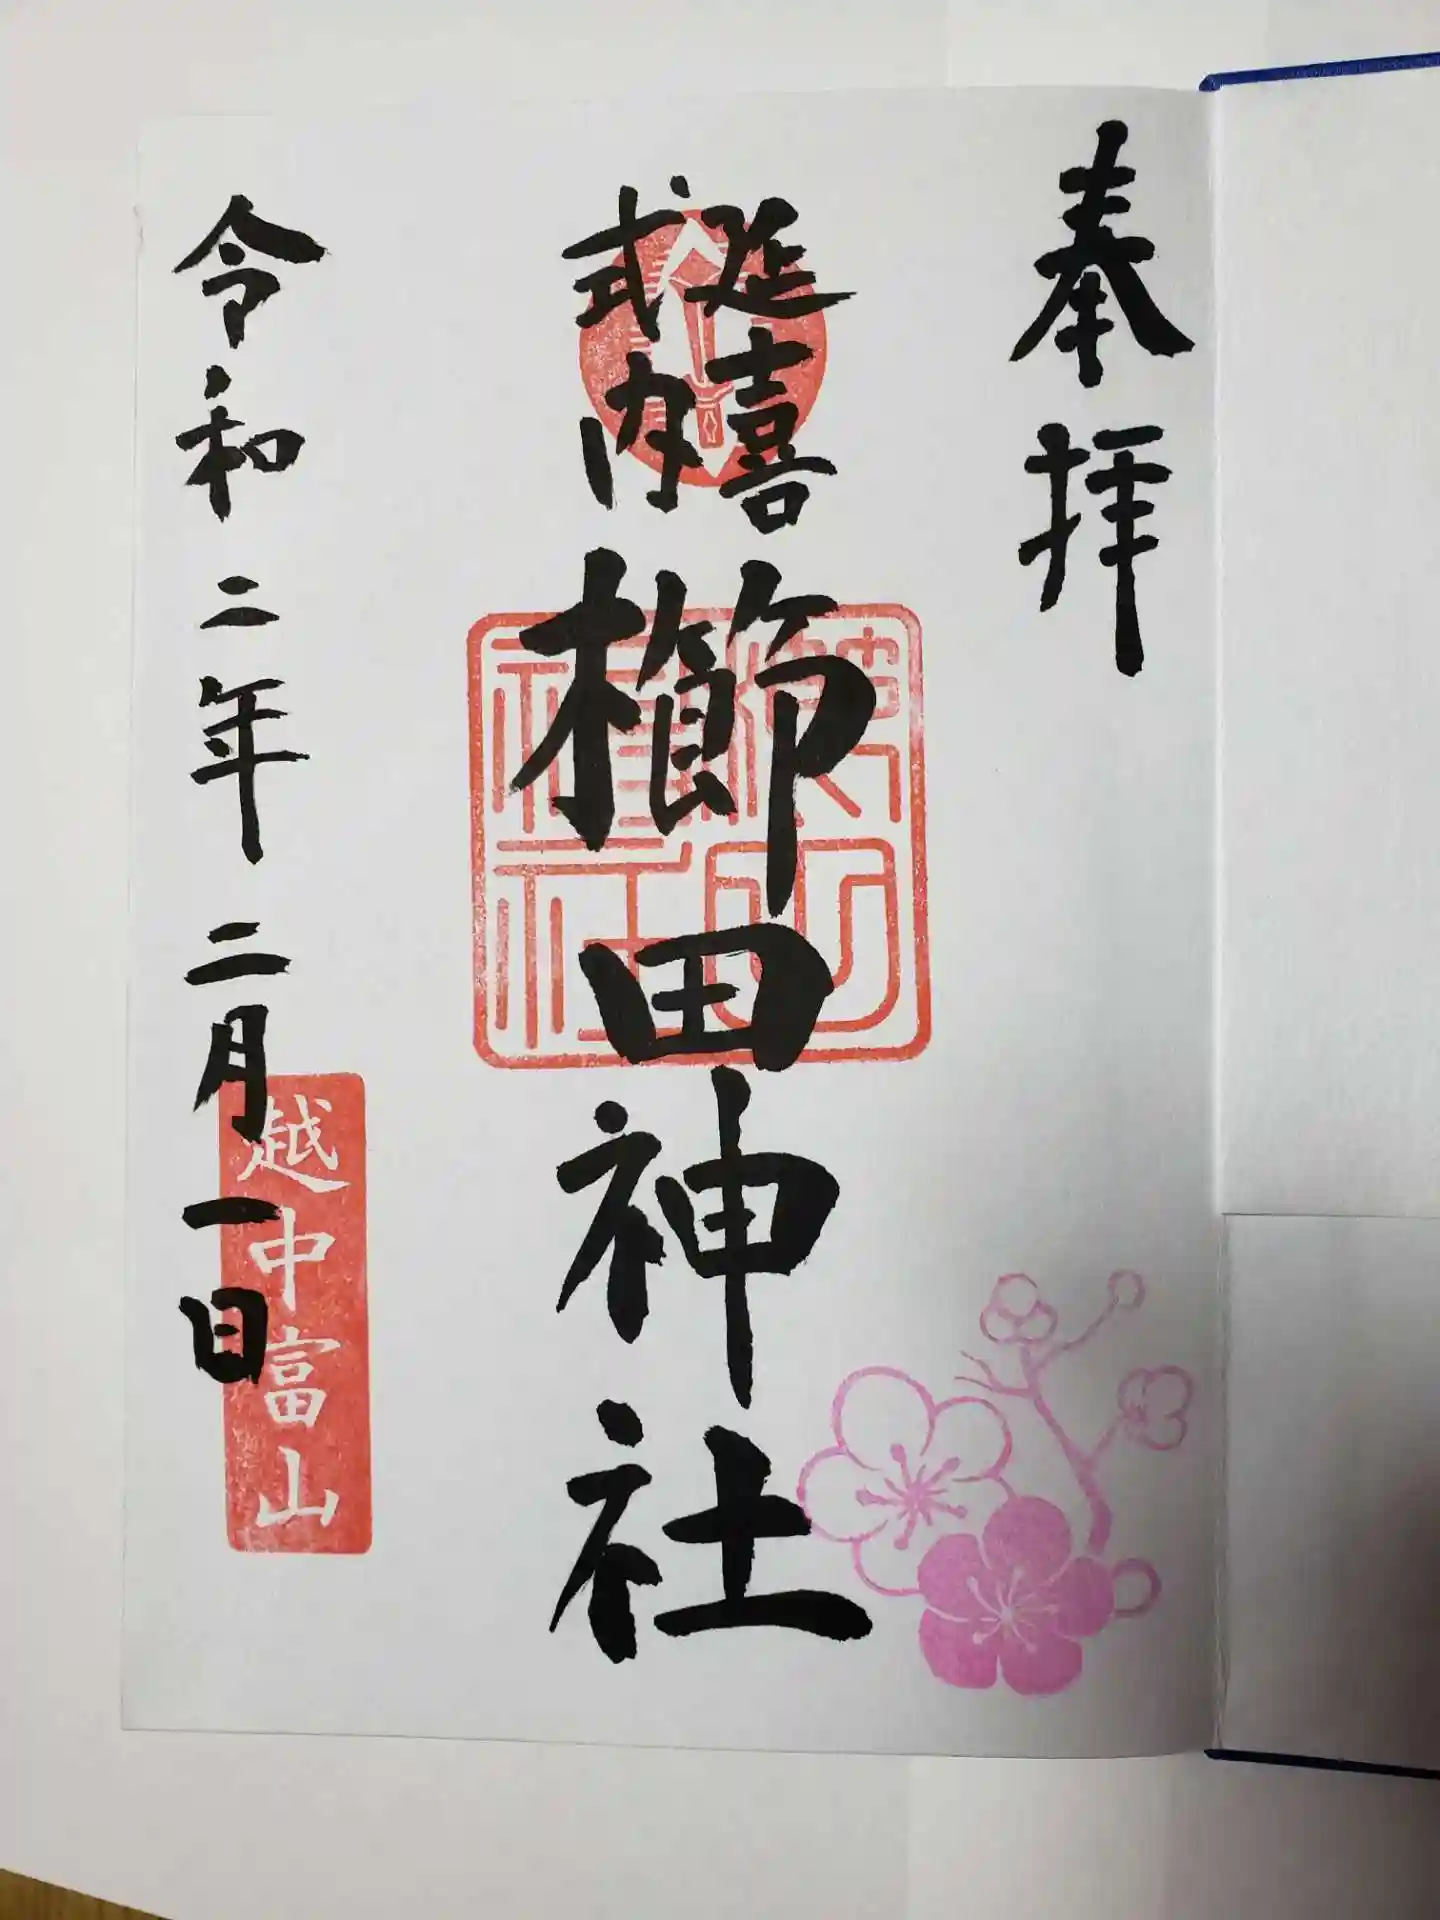 奉拝
延喜
式内
櫛田神社
令和二年二月一日
越中富山